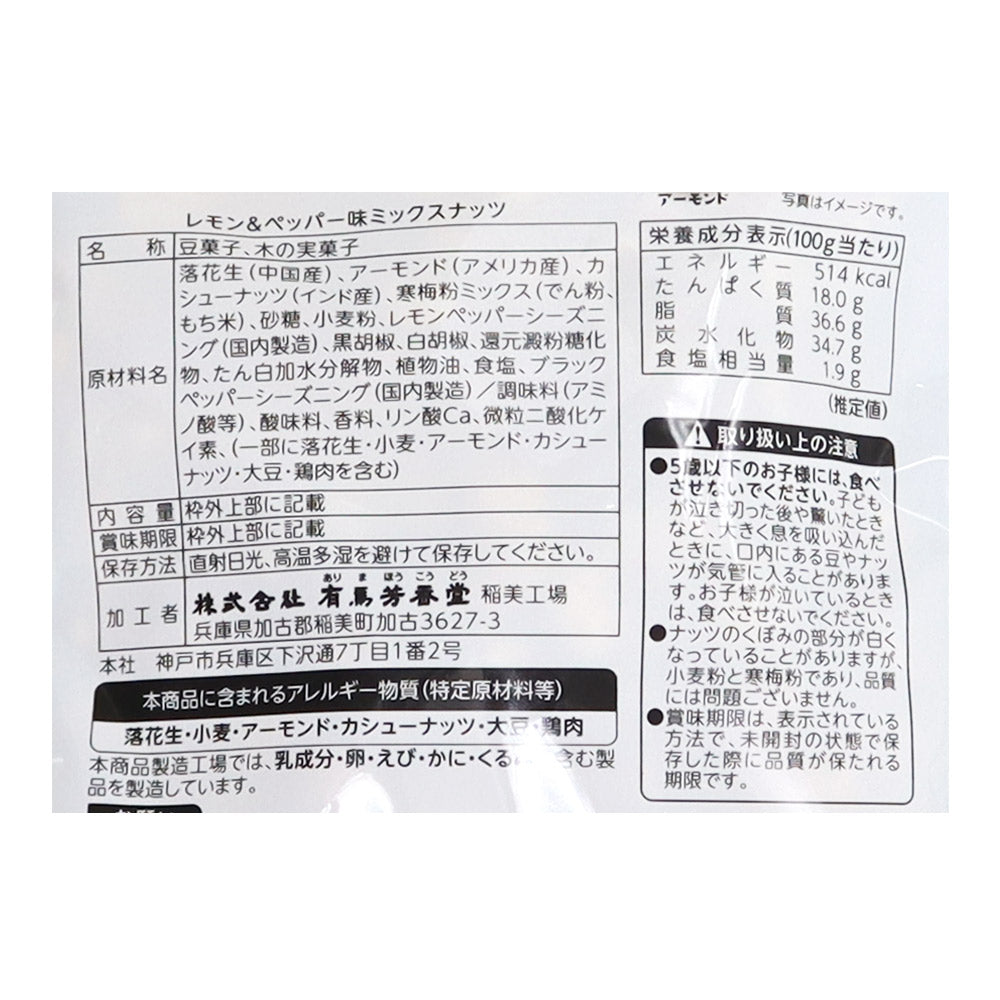 レモン&ペッパー味ミックスナッツ
名 称 豆菓子、木の実菓子
原材料名
落花生(中国産)、アーモンド(アメリカ産)、カ
シューナッツ(インド産)、寒梅粉ミックス(でん粉、
もち米)、砂糖、小麦粉、レモンペッパーシーズニ
ング(国内製造)、黒胡椒、白胡椒、還元澱粉糖化
物、たん白加水分解物、植物油、食塩、ブラック
ペッパーシーズニング(国内製造)/調味料(アミ
ノ酸等)、酸味料、香料、リン酸Ca、微粒二酸化ケ
イ素、(一部に落花生・小麦・アーモンド・カシュー
ナッツ・大豆・鶏肉を含む)
内容量 枠外上部に記載
賞味期限 枠外上部に記載
保存方法 直射日光、高温多湿を避けて保存してください。
加工者
あり ま ほう こう どう
株式会社 有馬芳香堂 稲美工場
兵庫県加古郡稲美町加古3627-3
本社 神戸市兵庫区下沢通7丁目1番2号
本商品に含まれるアレルギー物質(特定原材料等)
落花生・小麦・アーモンド・カシューナッツ・大豆・鶏肉
本商品製造工場では、乳成分・卵・えび・かに・くる 含む製
品を製造しています。
アーモンド
写真はイメージです。
栄養成分表示(100g当たり)
エネルギー 514 kcal
たんぱく質 18.0 g
脂質 36.6 g
炭水化物 34.7 g
食塩相当量 1.9 g
(推定値)
取り扱い上の注意
●5歳以下のお子様には、食べ
させないでください。子ども
が泣き切った後や驚いたとき
など、大きく息を吸い込んだ
ときに、口内にある豆やナッ
ツが気管に入ることがありま
す。お子様が泣いているとき
は、食べさせないでください。
●ナッツのくぼみの部分が白く
なっていることがありますが、
小麦粉と寒梅粉であり、品質
には問題ございません。
●賞味期限は、表示されている
方法で、未開封の状態で保
存した際に品質が保たれる
期限です。